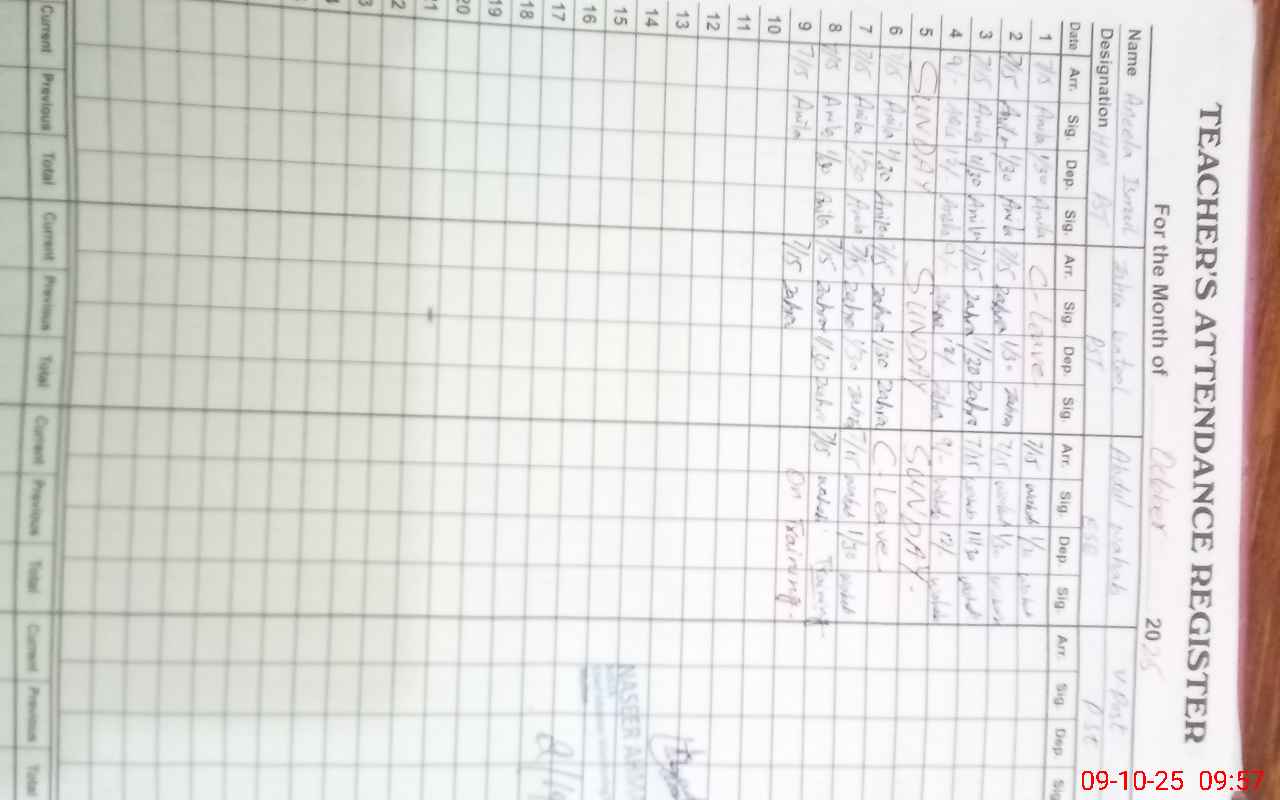 TEACHER'S ATTENDANCE REGISTER
For the Month of October 2025
Name Aneela Ismail Zahra batool Abdul wahab V. Post
Designation HM PST PST ESE PST
Date Arr. Sig. Dep. Sig. Arr. Sig. Dep. Sig. Arr. Sig. Dep. Sig. Arr. Sig. Dep. Sig
1 7/15 Anila 1/30 Anila C-Leave. 7/15 wahab
2 7/15 Anila 1/30 Anila 7/15 Zahra 1/30 Zahra 7/15 wahab
3 7/15 Anila 11/30 Anila 7/15 Zahra 11/30 Zahra 7/15 11/30 wahab
4 9/- Anila 12/- Anila 9/- Zahra 12/- Zahra 9/- wahab 12/- wahab
5 SUNDAY SUNDAY SUNDAY.
6 7/15 Anila 1/30 Anila 7/15 Zahra 1/30 Zahra C. Leave.
7 7/15 Anila 1/30 Anila 7/15 Zahra 1/30 Zahra 7/15 wahab 1/30 wahab
8 7/15 Anila 1/30 Anila 7/15 Zahra 1/30 Zahra 7/15 wahab Training
9 7/15 Anila 7/15 Zahra On Training.
10
11
12
13
14
15
16
17
18
19
20
21
22
3
NASEER AHMAD
Current Previous Total Current Previous Total Current Previous Total Current Previous Total
09-10-25 09:57